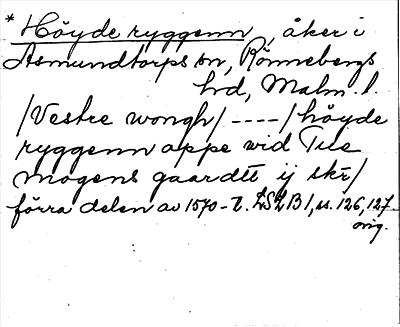 * Höyde ryggenn, åker i
Asmundtorps sn, Rönnebergs
hd, Malm. l.
/Vestre wongh/ ----/höyde
ryggenn oppe wid Tue
mogens gaardtt ij skr/
förra delen av 1570-t. LSLB1, s. 126, 127
orig.